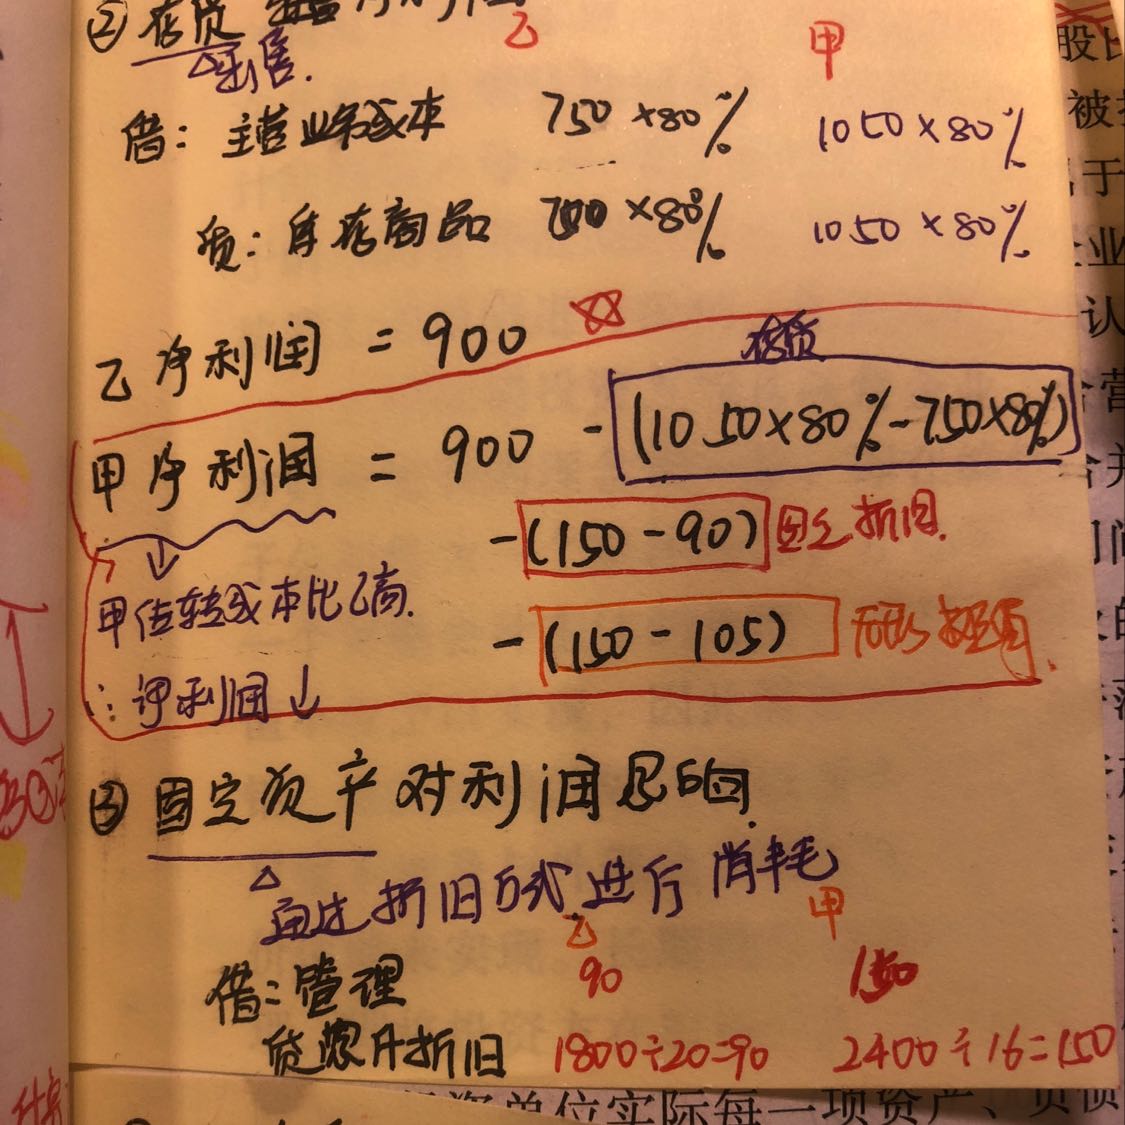 ② 存货
△出售. 乙 甲
借: 主营业务成本 750×80% 1050×80%
贷: 库存商品 700×80% 1050×80%
乙净利润 = 900
存货
甲净利润 = 900 -(1050×80%-750×80%)
-(150-90) 固定折旧.
↓
甲结转成本比乙高. -(150-105) 无形
∴ 净利润↓
③ 固定资产对利润影响.
△
通过折旧方式进行消耗
乙 甲
借: 管理 90 150
贷 累计折旧 1800÷20=90 2400÷16=150
股比
被
于
业
认
营
合并
期间
的
单位实际每一项资产、负债